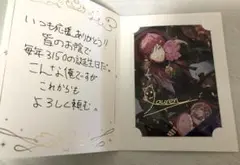 いつも応援ありがとう!!
皆のお陰で
毎年3150の誕生日だ。
こんな俺ですが
これからも
よろしく頼む。
Lauren